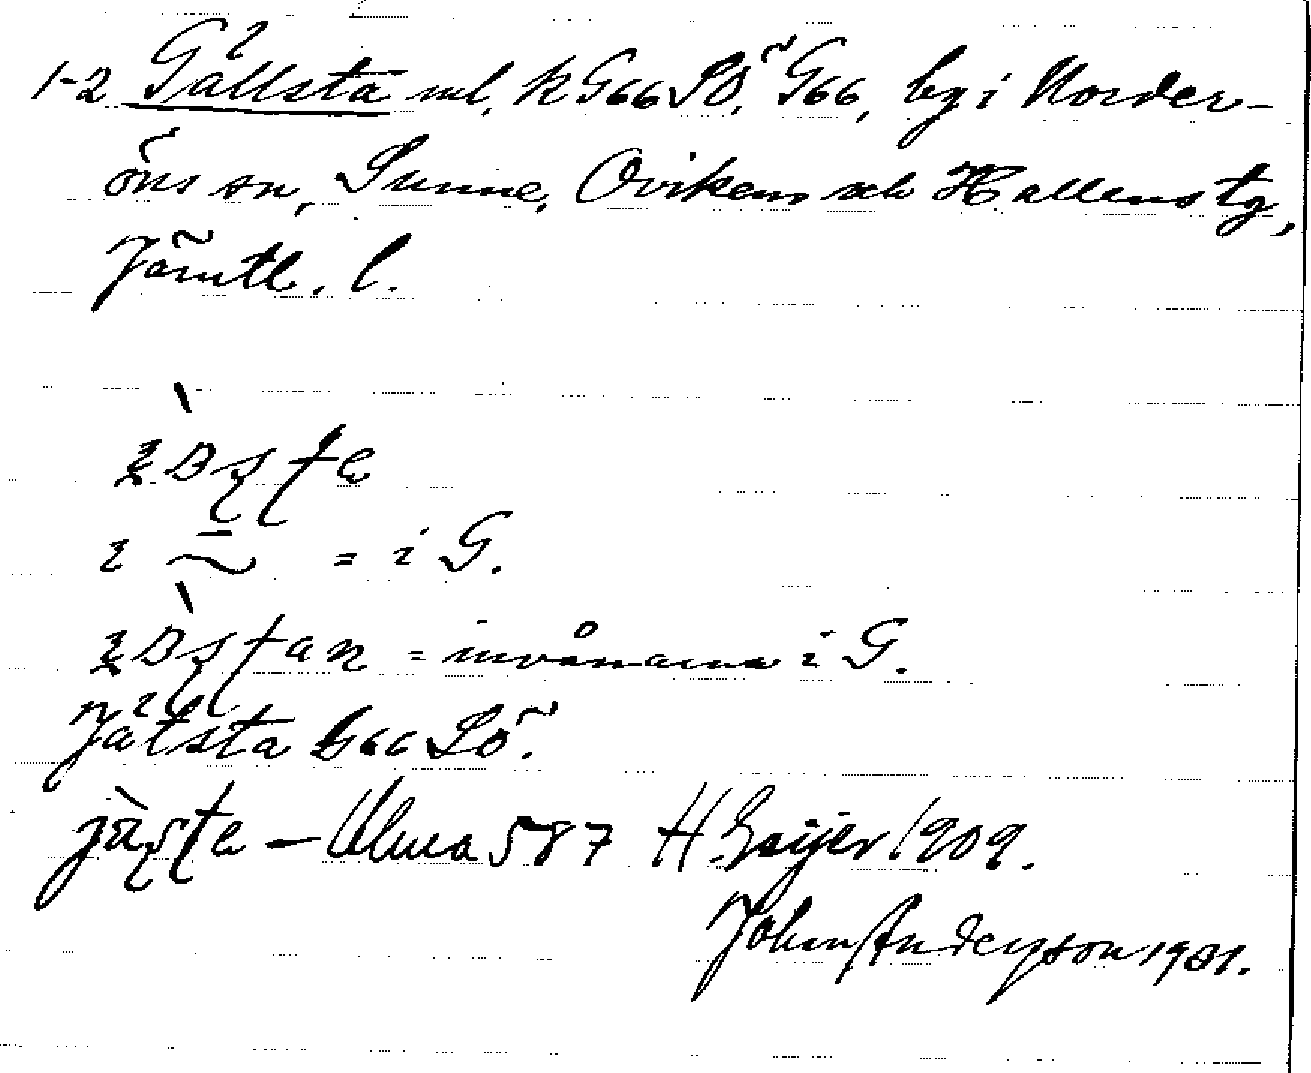 1-2 Gällsta ml, k G66 SÖ, G66, by i Norder-
öns sn, Sunne, Ovikens och Hallens tg,
Jämtl. l.
= i G.
= invånarna i G.
Jälsta G66 SÖ.
— Ulma 587 H. Geijer 1909.
John Andersson 1931.